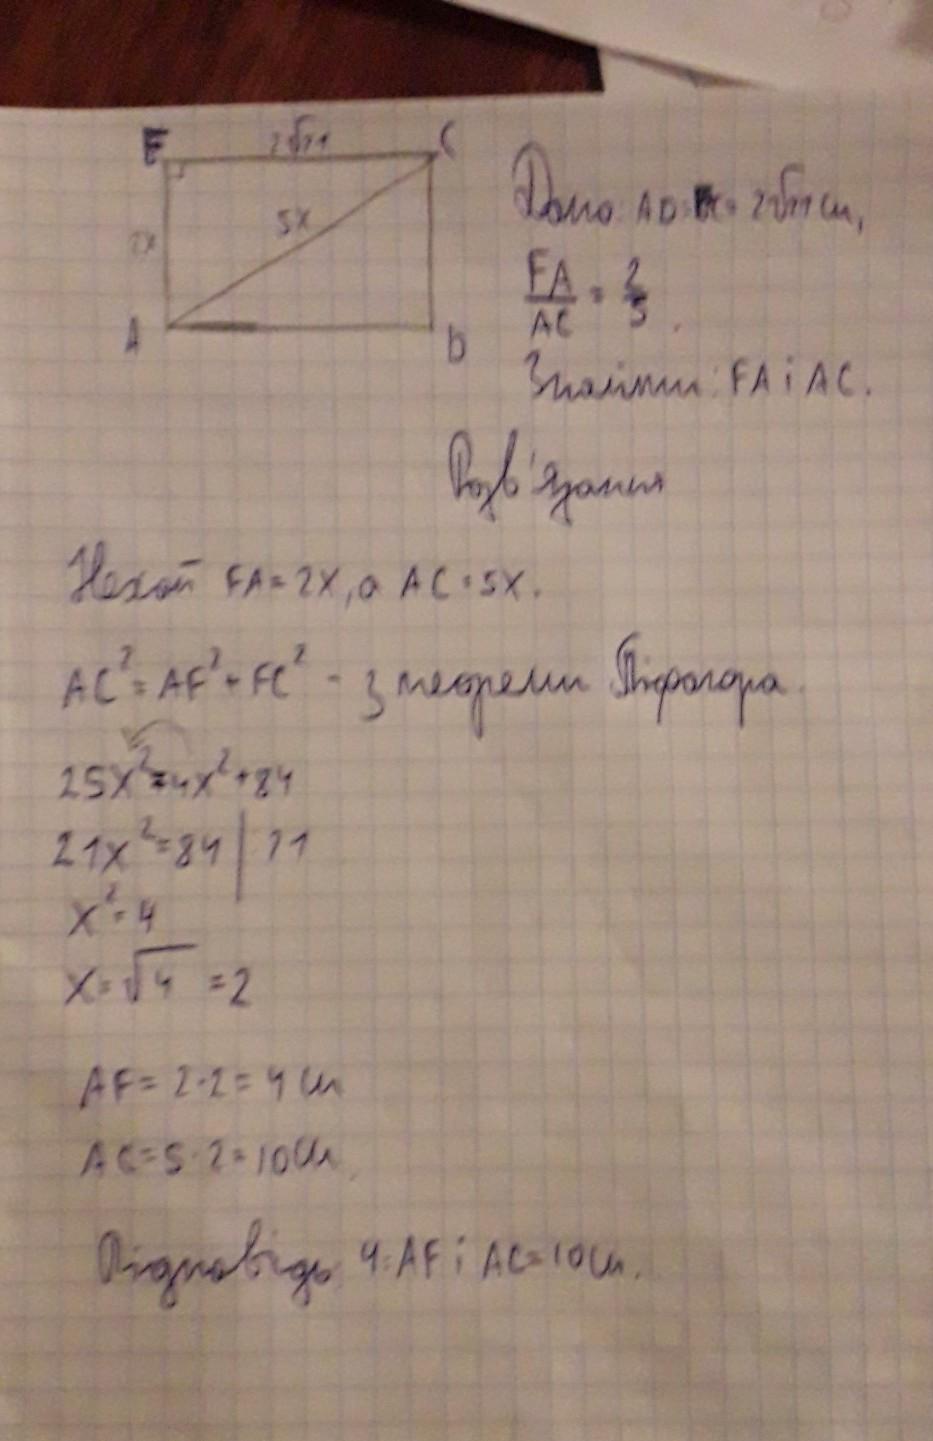 F 2√21 C
2x 5x
A D
Дано: AD = FC = 2√21 см,
FA/AC = 2/5.
Знайти: FA і AC.
Розв'язання
Нехай FA = 2x, а AC = 5x.
AC² = AF² + FC² - з теореми Піфагора.
25x² = 4x² + 84
21x² = 84 | 21
x² = 4
x = √4 = 2
AF = 2·2 = 4 см
AC = 5·2 = 10 см.
Відповідь: 4 = AF і AC = 10 см.